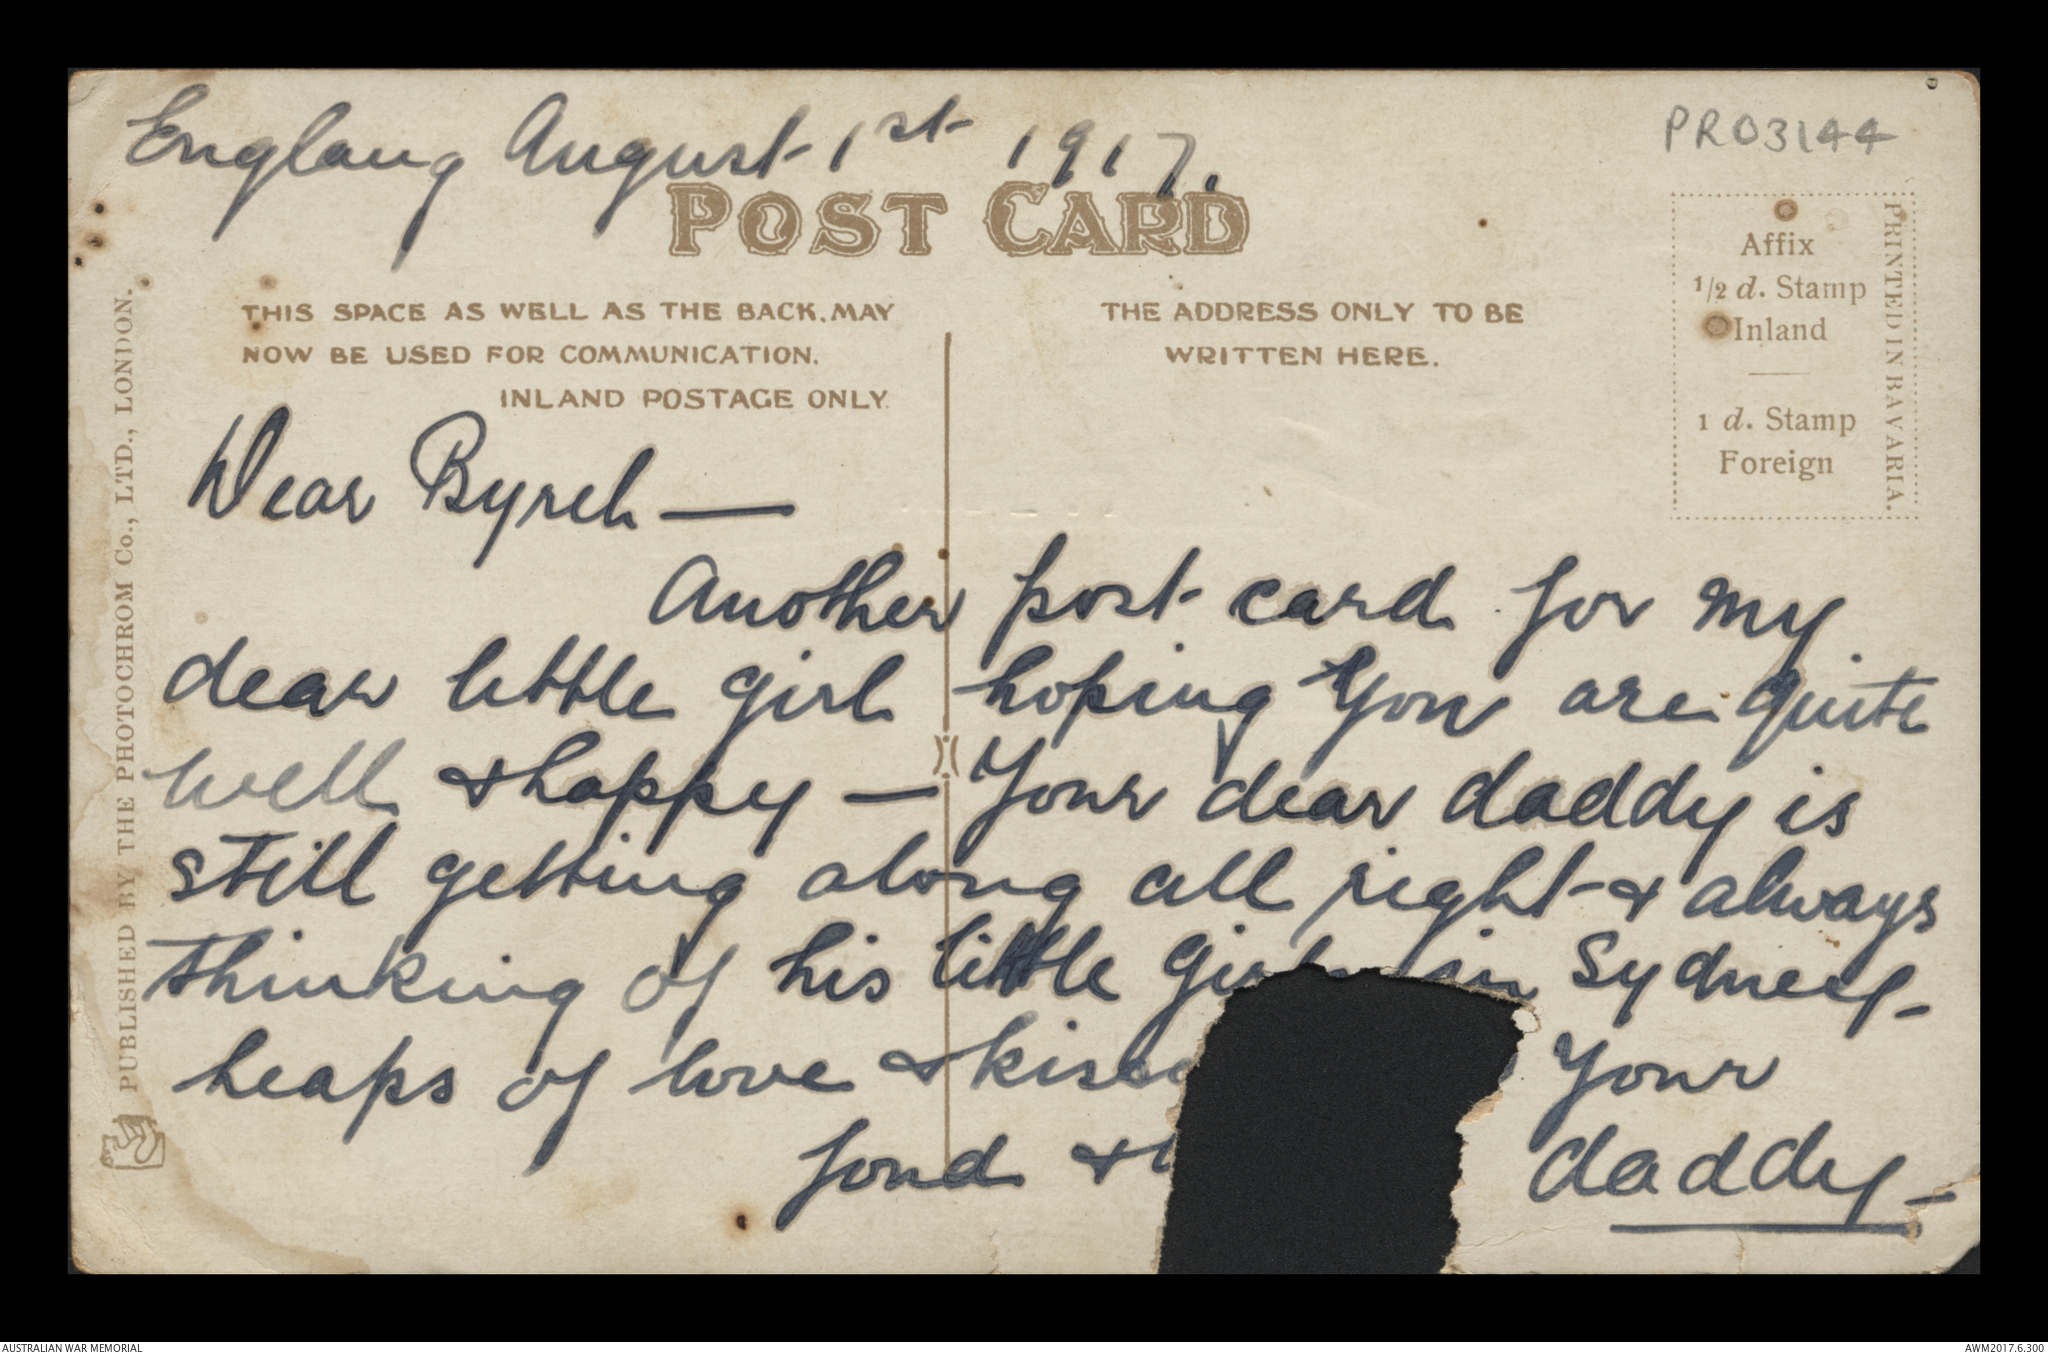 England August 1st 1917.
PR03144
POST CARD
THIS SPACE AS WELL AS THE BACK, MAY
NOW BE USED FOR COMMUNICATION.
INLAND POSTAGE ONLY.
THE ADDRESS ONLY TO BE
WRITTEN HERE.
Affix
1/2 d. Stamp
Inland
1 d. Stamp
Foreign
PRINTED IN BAVARIA.
PUBLISHED BY THE PHOTOCHROM Co., LTD., LONDON.
Dear Byrel —
Another post card for my
dear little girl hoping you are quite
well & happy — Your dear daddy is
still getting along all right & always
thinking of his little in Sydney -
heaps of love & Your
fond & daddy -
AUSTRALIAN WAR MEMORIAL
AWM2017.6.300